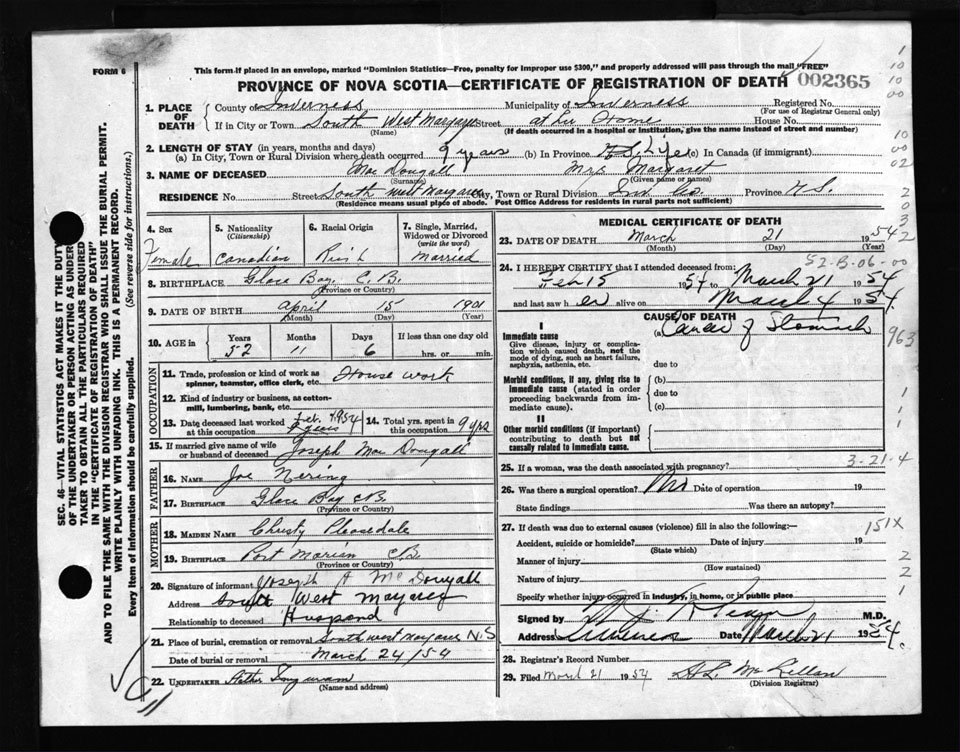 FORM 6
This form if placed in an envelope, marked "Dominion Statistics—Free, penalty for improper use $300," and properly addressed will pass through the mail "FREE"
PROVINCE OF NOVA SCOTIA—CERTIFICATE OF REGISTRATION OF DEATH 002365
1. PLACE OF DEATH County of Inverness Municipality of Inverness Registered No. (For use of Registrar General only)
If in City or Town South West Margaree Street at her Home House No.
(Name) (If death occurred in a hospital or institution, give the name instead of street and number)
2. LENGTH OF STAY (in years, months and days)
(a) In City, Town or Rural Division where death occurred 9 years (b) In Province Life (c) In Canada (if immigrant)
3. NAME OF DECEASED Mac Dougall Mrs Margaret
(Surname) (Given name or names)
RESIDENCE No. Street South West Margaree City, Town or Rural Division Inv Co. Province N.S.
(Residence means usual place of abode. Post Office Address for residents in rural parts not sufficient)
SEC. 46—VITAL STATISTICS ACT MAKES IT THE DUTY
OF THE UNDERTAKER OR PERSON ACTING AS UNDER
TAKER TO OBTAIN ALL THE PARTICULARS REQUIRED
IN THE "CERTIFICATE OF REGISTRATION OF DEATH"
AND TO FILE THE SAME WITH THE DIVISION REGISTRAR WHO SHALL ISSUE THE BURIAL PERMIT.
WRITE PLAINLY WITH UNFADING INK. THIS IS A PERMANENT RECORD.
Every item of information should be carefully supplied. (See reverse side for instructions.)
4. Sex Female
5. Nationality (Citizenship) Canadian
6. Racial Origin
7. Single, Married, Widowed or Divorced (write the word) Married
8. BIRTHPLACE Glace Bay, C.B.
(Province or Country)
9. DATE OF BIRTH April 15 1901
(Month) (Day) (Year)
10. AGE in Years 52 Months 11 Days 6 If less than one day old hrs. or min.
OCCUPATION
11. Trade, profession or kind of work as spinner, teamster, office clerk, etc. House work
12. Kind of industry or business, as cotton-mill, lumbering, bank, etc.
13. Date deceased last worked at this occupation Feb. 1954
14. Total yrs. spent in this occupation 9 yrs
15. If married give name of wife or husband of deceased Joseph Mac Dougall
FATHER
16. NAME Joe
17. BIRTHPLACE Glace Bay CB.
(Province or Country)
MOTHER
18. MAIDEN NAME Christy
19. BIRTHPLACE Port Morien C.B.
(Province or Country)
20. Signature of informant Joseph A McDougall
Address South West Margaree
Relationship to deceased Husband
21. Place of burial, cremation or removal South west Margaree N.S
Date of burial or removal March 24/54
22. UNDERTAKER
(Name and address)
MEDICAL CERTIFICATE OF DEATH
23. DATE OF DEATH March 21 1954
(Month) (Day) (Year)
52-B-06-00
24. I HEREBY CERTIFY that I attended deceased from:
Feb 15 1954 to March 21 1954
and last saw her alive on March 4 1954.
CAUSE OF DEATH
I
Immediate cause
Give disease, injury or complication which caused death, not the mode of dying, such as heart failure, asphyxia, asthenia, etc.
(a) Cancer of Stomach
963
due to
Morbid conditions, if any, giving rise to immediate cause (stated in order proceeding backwards from immediate cause).
(b)
due to
(c)
II
Other morbid conditions (if important) contributing to death but not causally related to immediate cause.
25. If a woman, was the death associated with pregnancy? 3-21-4
26. Was there a surgical operation? No Date of operation 19
State findings Was there an autopsy?
27. If death was due to external causes (violence) fill in also the following:— 151X
Accident, suicide or homicide? Date of injury 19
(State which)
Manner of injury
(How sustained)
Nature of injury
Specify whether injury occurred in industry, in home, or in public place
Signed by M.D.
Address Inverness Date March 21 1954.
28. Registrar's Record Number
29. Filed March 21 1954 McLellan
(Division Registrar)